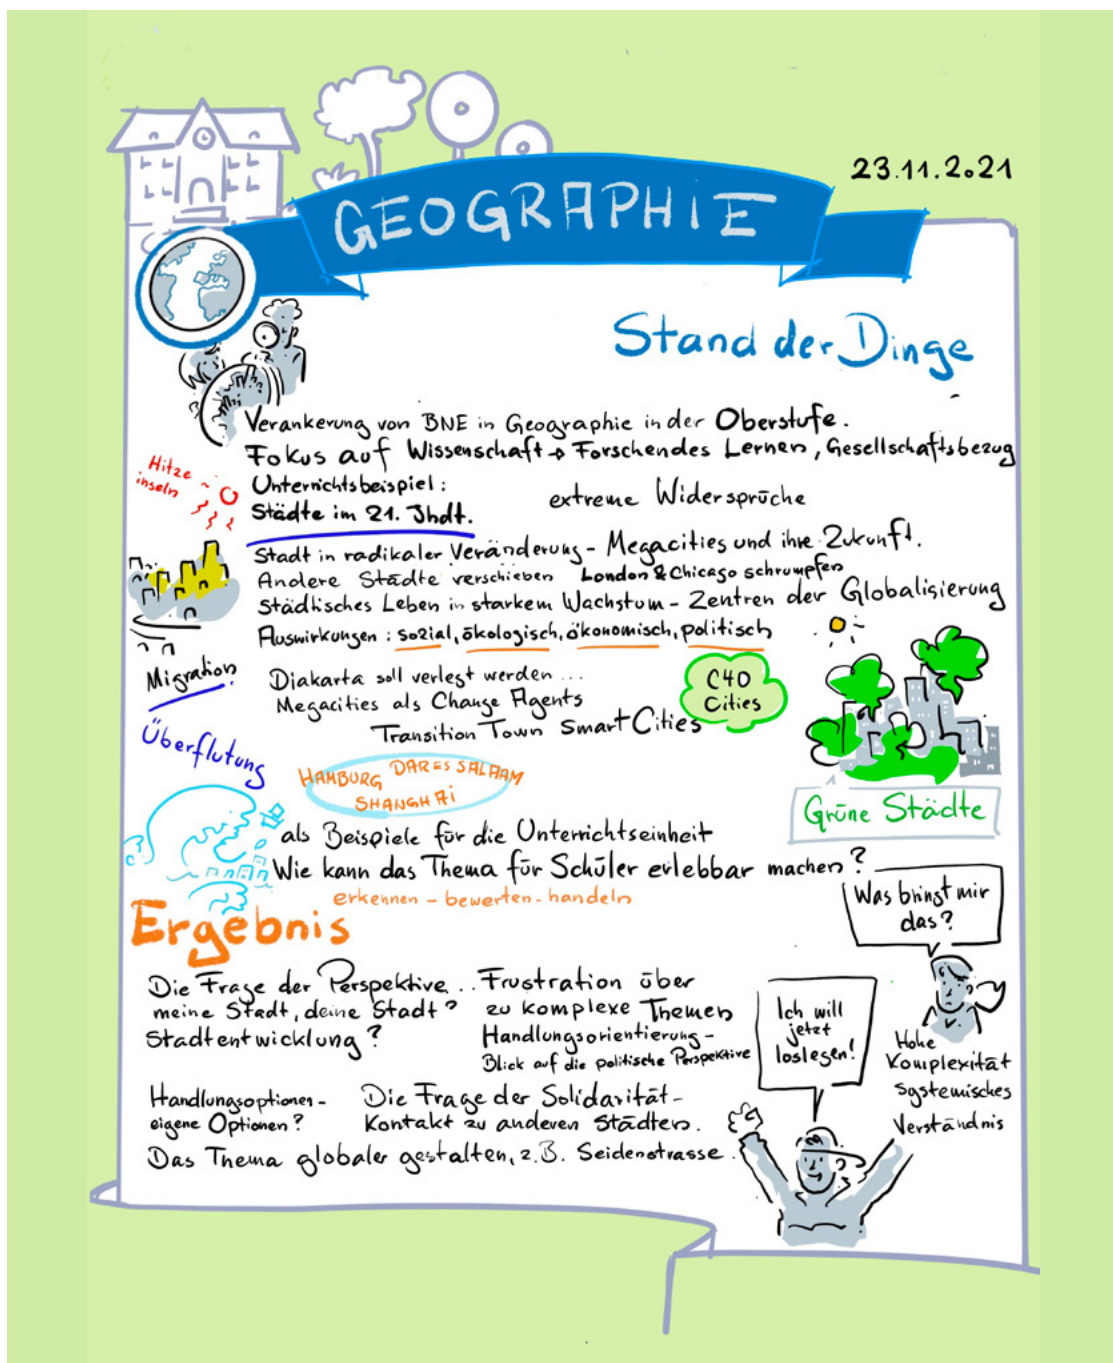 23.11.2021
GEOGRAPHIE
Stand der Dinge
Verankerung von BNE in Geographie in der Oberstufe.
Fokus auf Wissenschaft → Forschendes Lernen, Gesellschaftsbezug
Hitze
inseln
Unterrichtsbeispiel:
Städte im 21. Jhdt.
extreme Widersprüche
Stadt in radikaler Veränderung - Megacities und ihre Zukunft.
Andere Städte verschieben London & Chicago schrumpfen
Städtisches Leben in starkem Wachstum - Zentren der Globalisierung
Auswirkungen: sozial, ökologisch, ökonomisch, politisch
Migration
Diakarta soll verlegt werden...
Megacities als Change Agents
Transition Town Smart Cities
C40
Cities
Überflutung
HAMBURG DARES SALAAM
SHANGHAi
Grüne Städte
als Beispiele für die Unterrichtseinheit
Wie kann das Thema für Schüler erlebbar machen?
erkennen - bewerten - handeln
Was bringt mir
das?
Ergebnis
Die Frage der Perspektive...
meine Stadt, deine Stadt?
Stadtentwicklung?
Frustration über
zu komplexe Themen
Handlungsorientierung -
Blick auf die politische Perspektive
Ich will
jetzt
loslegen!
Hohe
Komplexität
Systemisches
Verständnis
Handlungsoptionen -
eigene Optionen?
Die Frage der Solidarität -
Kontakt zu anderen Städten.
Das Thema globaler gestalten, z.B. Seidenstrasse.